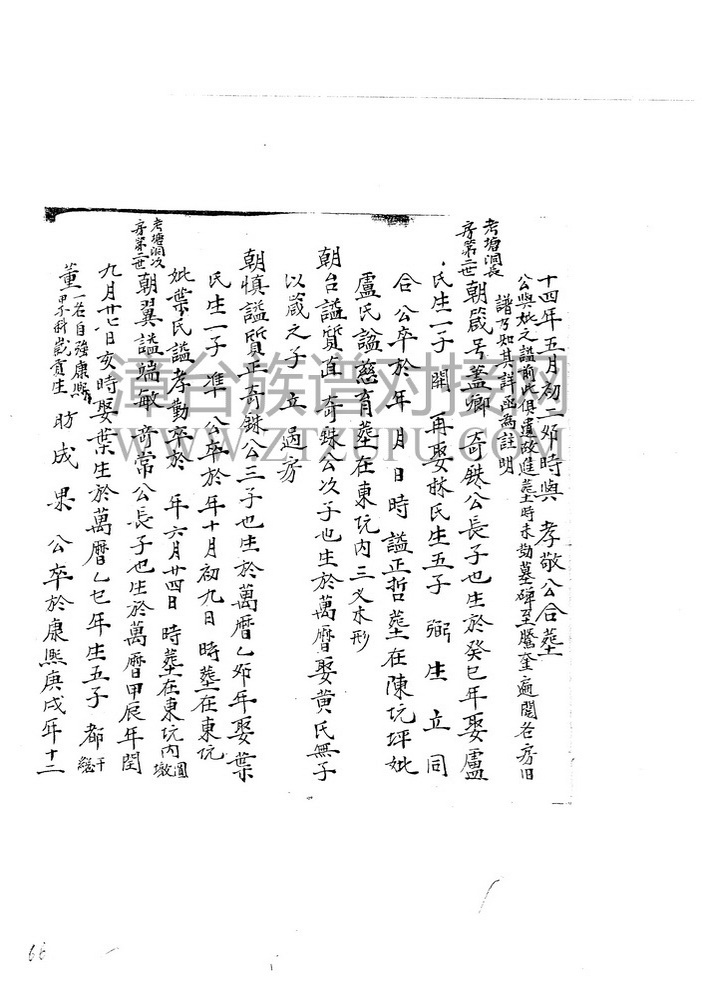 十四年五月初二夘時與 孝敬公合塟
公與妣之謚前此俱遺故進塟時未勒墓碑至騰奎遍閱各房旧
譜乃知其詳函為註明
考塘洞長
房第二世
朝箴号蓋卿 奇𨥤公長子也生於癸巳年娶盧
氏生一子 開 再娶林氏生五子 生 立 同
合 公卒於 年 月 日 時 謚正哲 塟在陳坑坪妣
盧氏謚慈育塟在東坑内三义木形
朝台謚質直 奇公次子也生於萬曆娶黄氏無子
以箴之子 立過房
朝慎謚質正奇公三子也生於萬曆乙夘年娶葉
氏生一子 準 公卒於 年十月初九日 時塟在東坑
妣葉氏謚孝勤卒於 年六月廿四日 時塟在東坑内圓墩
考塘洞次
房第二世
朝翼謚端敏 奇常公長子也生於萬曆甲辰年閏
九月廿七日亥時娶葉生於萬曆乙巳年生五子 都
董 一名自強康熙
甲子科歲貢生 助 成 果 公卒於康熙庚戌年十二
漳台族谱对接网
WWW.ZTZUPU.COM
66